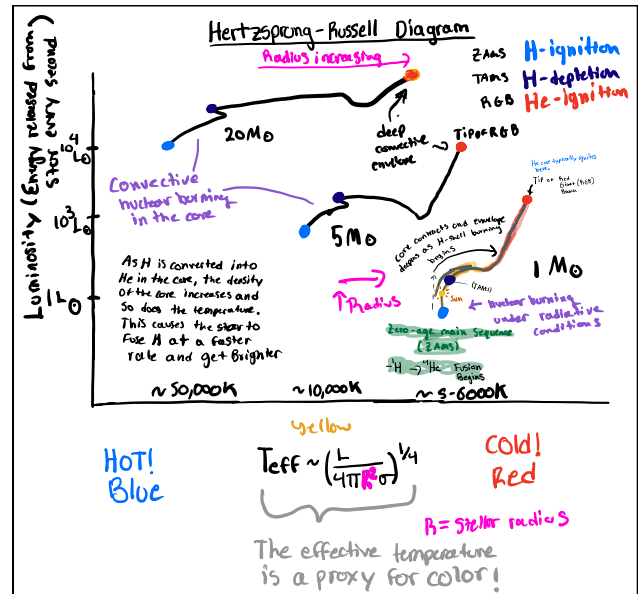 Hertzsprung-Russell Diagram
Radius increasing
ZAMS H-ignition
TAMS H-depletion
RGB He-ignition
Luminosity (Energy released from
star every second
10⁴ L⊙
10² L⊙
1 L⊙
20M⊙
deep
convective
envelope
Tip of RGB
Convective
nuclear burning
in the core
5M⊙
He core typically ignites
here.
Tip of Red
Giant (RGB)
Branch
Core contracts and envelope
deepens as H-shell burning
begins
1 M⊙
(TAMS)
Sun
↑Radius
nuclear burning
under radiative
conditions
As H is converted into
He in the core, the density
Of the core increases and
So does the temperature.
This causes the star to
Fuse H at a faster
rate and get Brighter
Zero-age main Sequence
(ZAMS)
¹H → ⁴He Fusion
Begins
~50,000K ~10,000K ~5-6000K
yellow
HOT!
Blue
Teff ~ (L/4πR²σ)^1/4
COLD!
Red
R = stellar radius
The effective temperature
is a proxy for color!